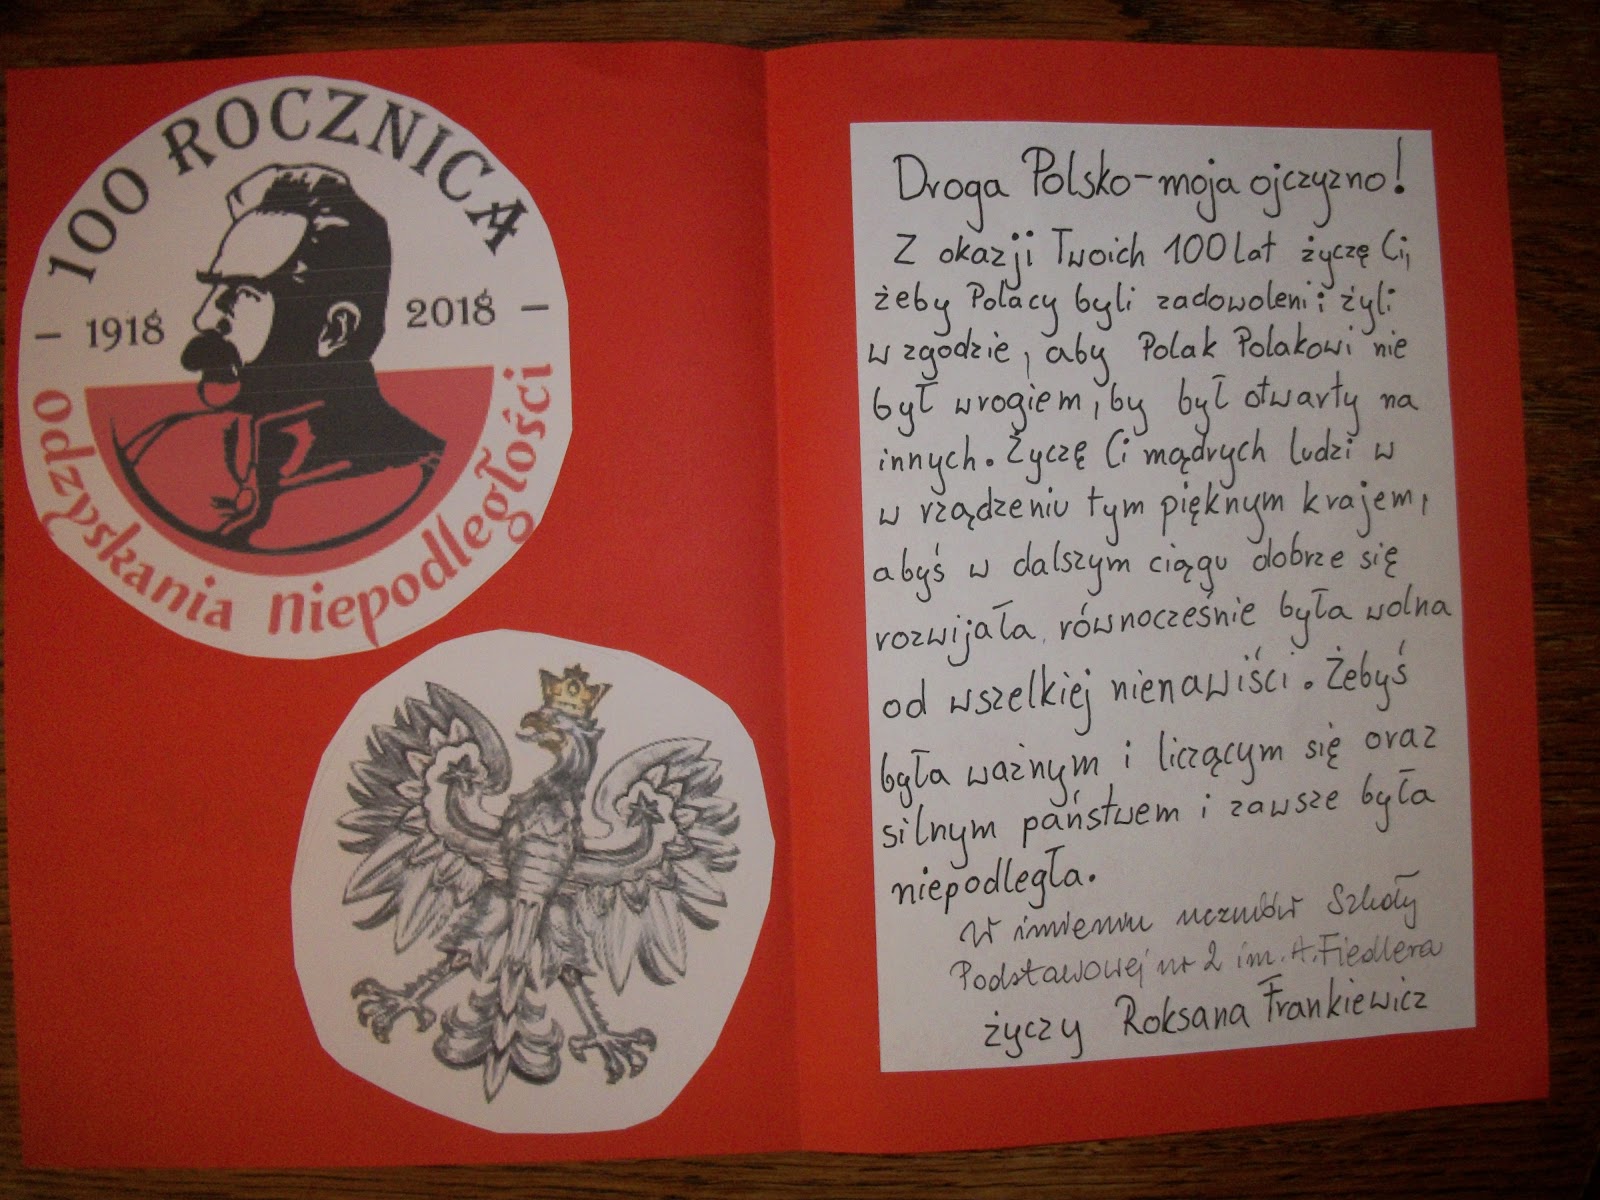 100 ROCZNICA
– 1918
2018 –
odzyskania Niepodległości
Droga Polsko-moja ojczyzno!
Z okazji Twoich 100 lat życzę Ci,
żeby Polacy byli zadowoleni i żyli
w zgodzie, aby Polak Polakowi nie
był wrogiem, by był otwarty na
innych. Życzę Ci mądrych ludzi w
w rządzeniu tym pięknym krajem,
abyś w dalszym ciągu dobrze się
rozwijała, równocześnie była wolna
od wszelkiej nienawiści. Żebyś
była ważnym i liczącym się oraz
silnym państwem i zawsze była
niepodległa.
W imieniu uczniów Szkoły
Podstawowej nr 2 im. A. Fiedlera
życzy Roksana Frankiewicz